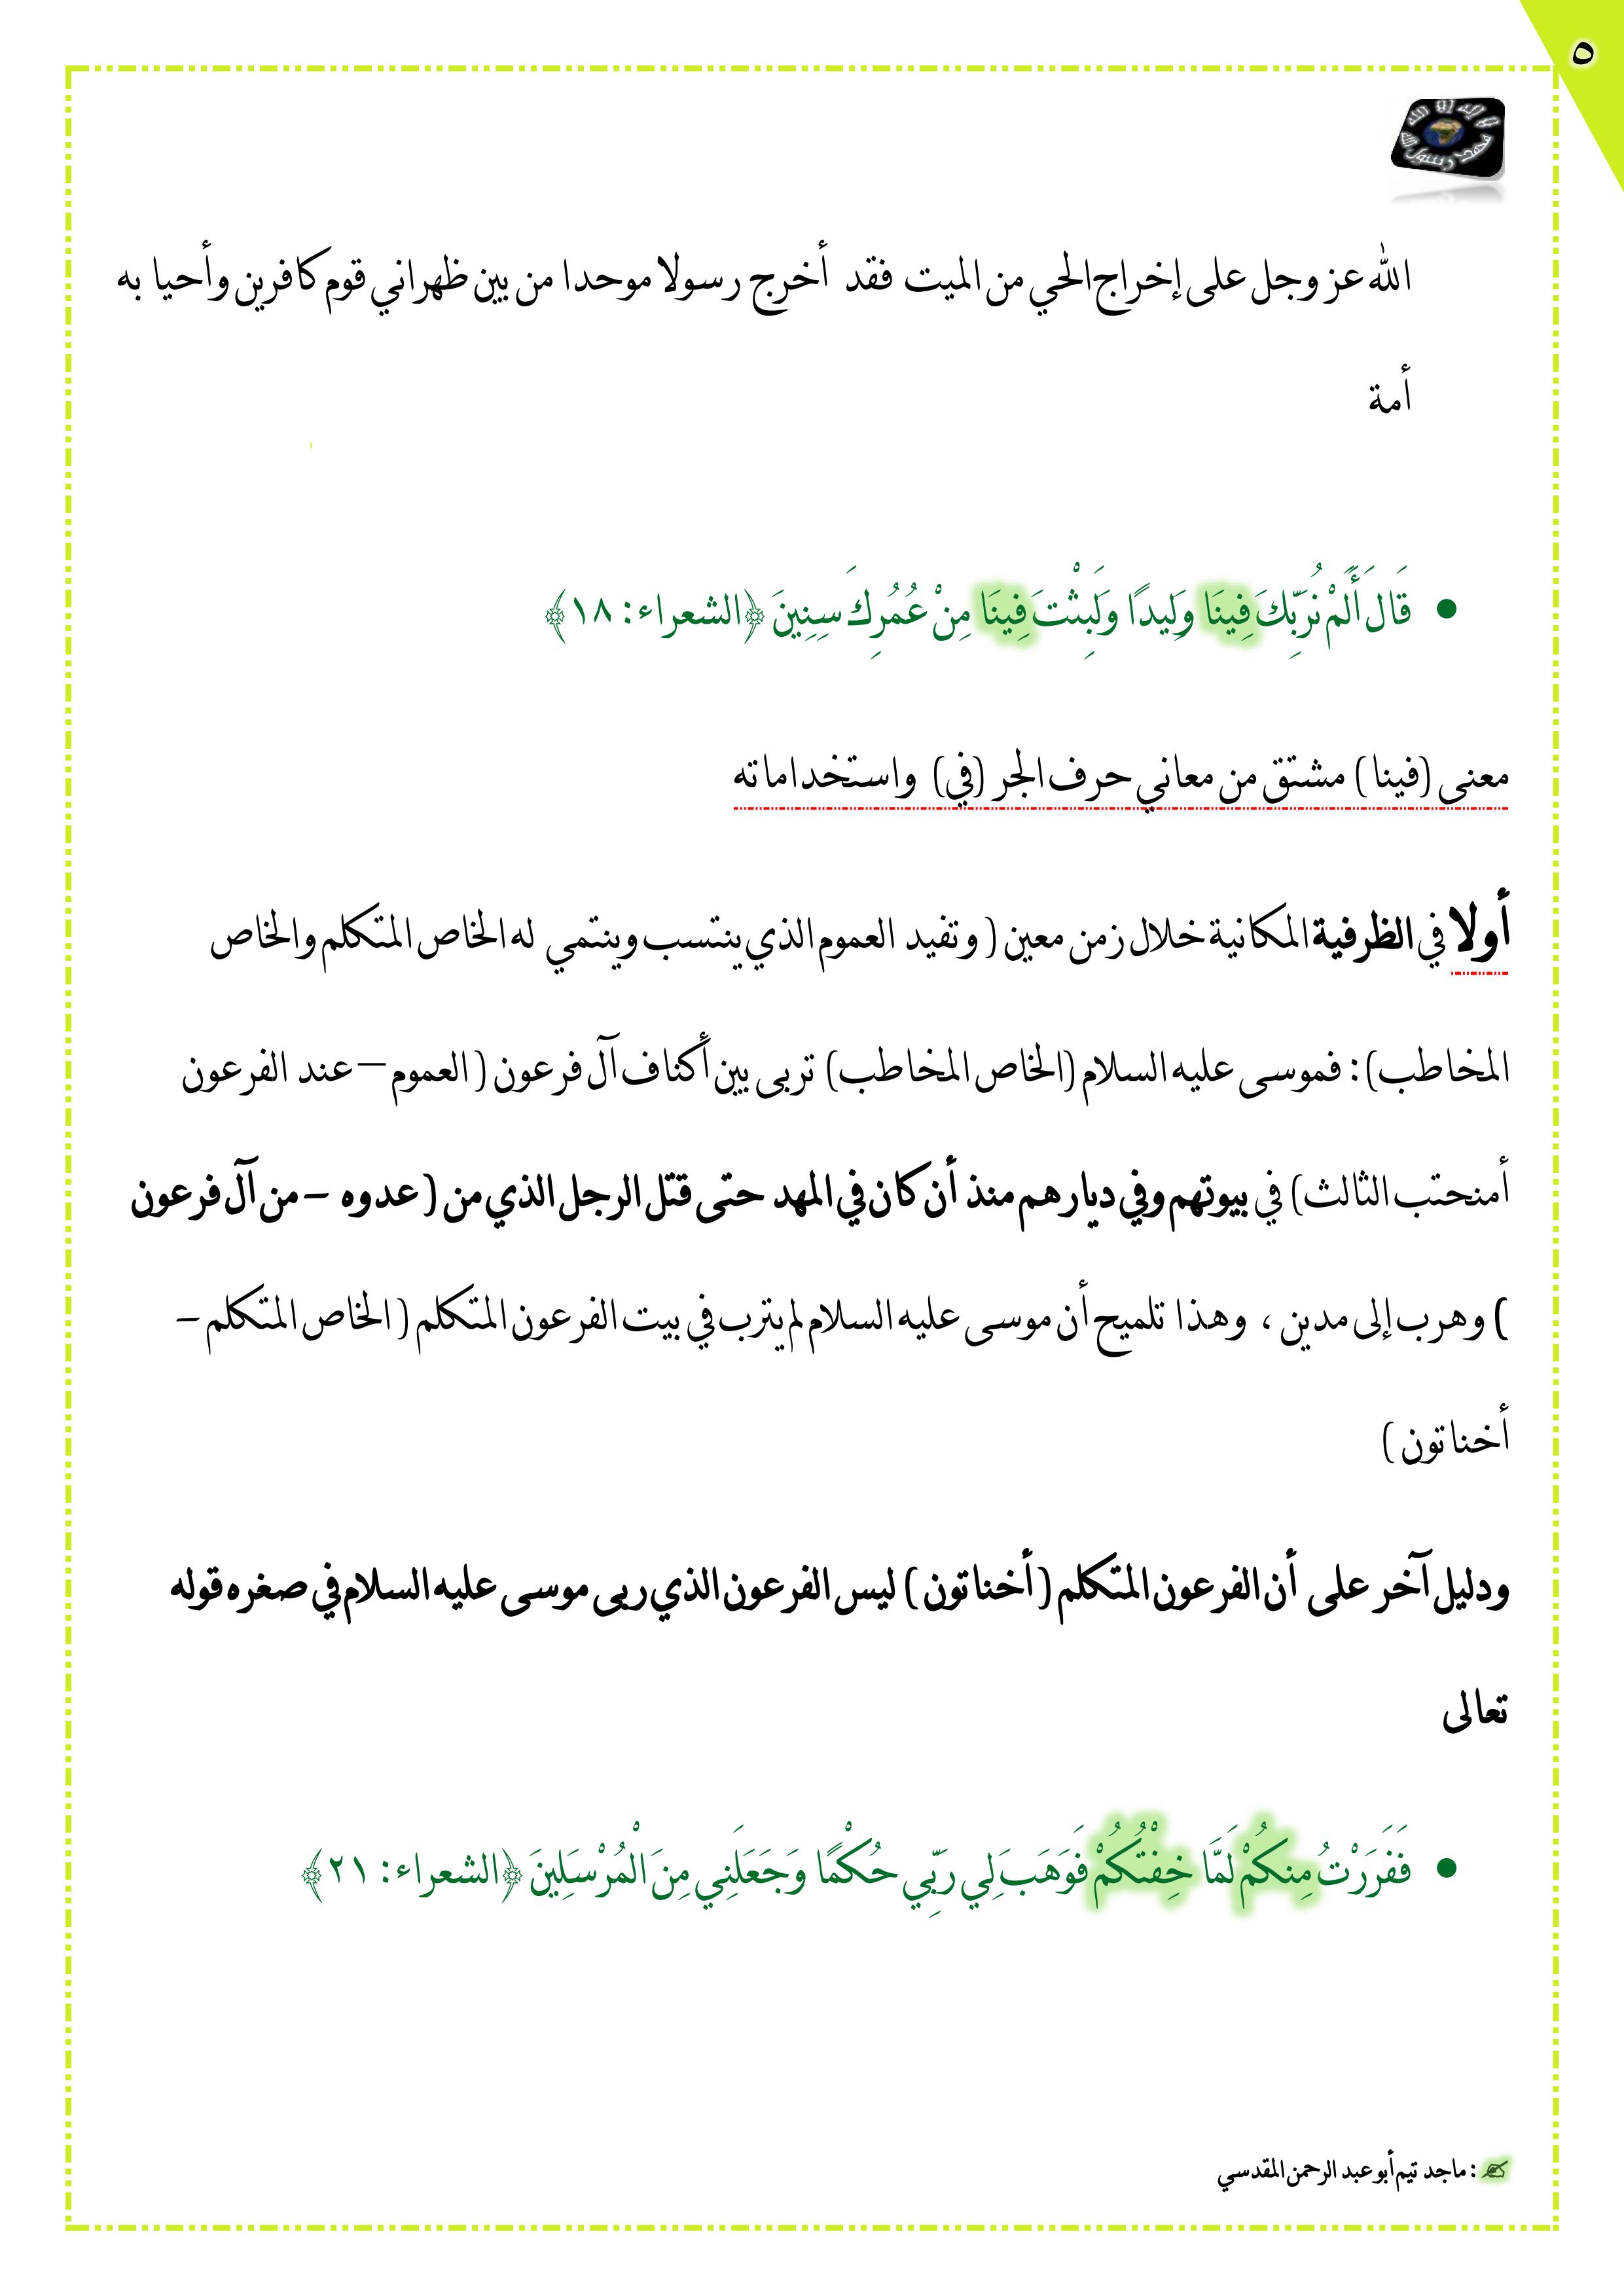 ٥
لا إله إلا الله
محمد رسول الله
الله عز وجل على إخراج الحي من الميت فقد أخرج رسولا موحدا من بين ظهراني قوم كافرين وأحيا به
أمة
• قَالَ أَلَمْ نُرَبِّكَ فِينَا وَلِيدًا وَلَبِثْتَ فِينَا مِنْ عُمُرِكَ سِنِينَ ﴿الشعراء: ١٨﴾
معنى (فينا) مشتق من معاني حرف الجر (في) واستخداماته
أولا في الظرفية المكانية خلال زمن معين ( وتفيد العموم الذي ينتسب وينتمي له الخاص المتكلم والخاص
المخاطب) : فموسى عليه السلام (الخاص المخاطب) تربى بين أكناف آل فرعون ( العموم – عند الفرعون
أمنحتب الثالث) في بيوتهم وفي ديارهم منذ أن كان في المهد حتى قتل الرجل الذي من ( عدوه – من آل فرعون
) وهرب إلى مدين ، وهذا تلميح أن موسى عليه السلام لم يترب في بيت الفرعون المتكلم ( الخاص المتكلم –
أخناتون )
ودليل آخر على أن الفرعون المتكلم ( أخناتون ) ليس الفرعون الذي ربى موسى عليه السلام في صغره قوله
تعالى
• فَفَرَرْتُ مِنكُمْ لَمَّا خِفْتُكُمْ فَوَهَبَ لِي رَبِّي حُكْمًا وَجَعَلَنِي مِنَ الْمُرْسَلِينَ ﴿الشعراء: ٢١﴾
✍ : ماجد تيم أبو عبد الرحمن المقدسي